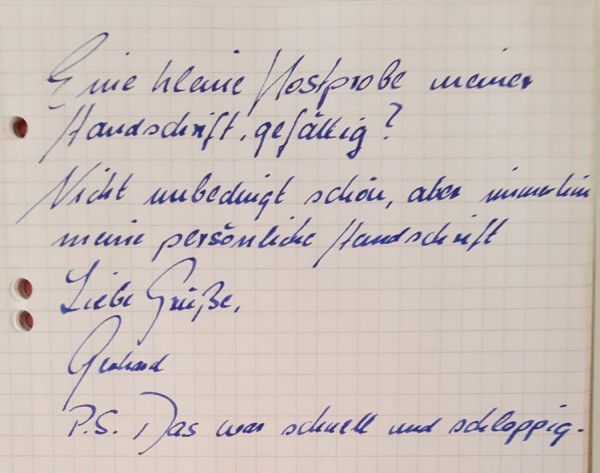 Eine kleine Kostprobe meiner
Handschrift, gefällig?
Nicht unbedingt schön, aber immerhin
meine persönliche Handschrift
Liebe Grüße,
Gerhard
P.S. Das war schnell und schlappig.